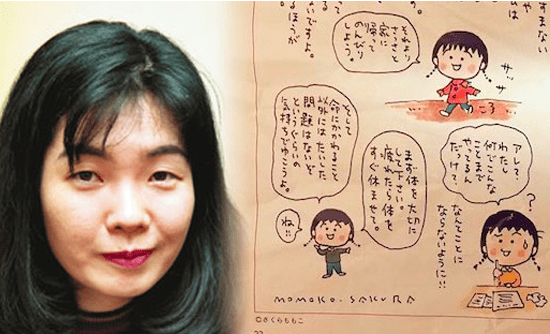 すまない
ムは
ないですよ。
るほうが
それより
さっさと
家に
帰って
のんびり
しよう。
サッ サッ
ころ
そして
命にかかわること
以外にはたいした
問題はないぞ
というぐらいの
気持ちでゆこうよ。
ね!!
まず体を大切に
して下さい。
疲れたら体を
すぐ休ませて。
アレ?、
わたし
何でこんな
ことまで
やってるん
だっけ?、
?
なんてことに
ならないように!!
MOMOKO.SAKURA
©さくらももこ